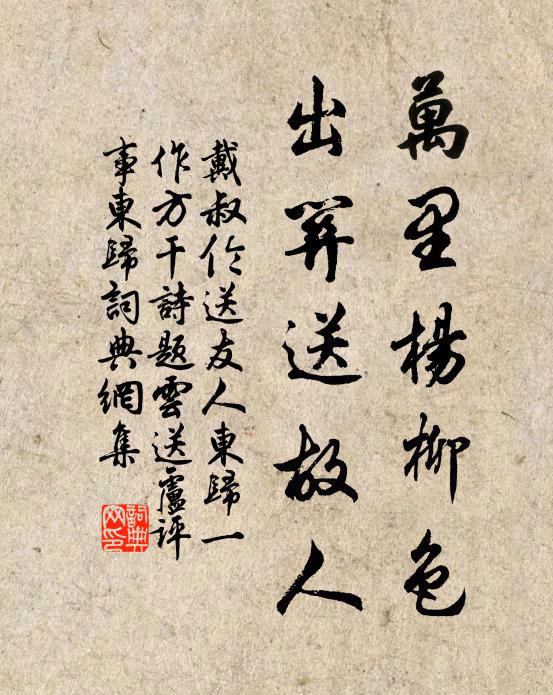 萬里楊柳色
出關送故人
戴叔倫送友人東歸一
作方干詩題雲送盧評
事東歸詞典網集
詞典
网